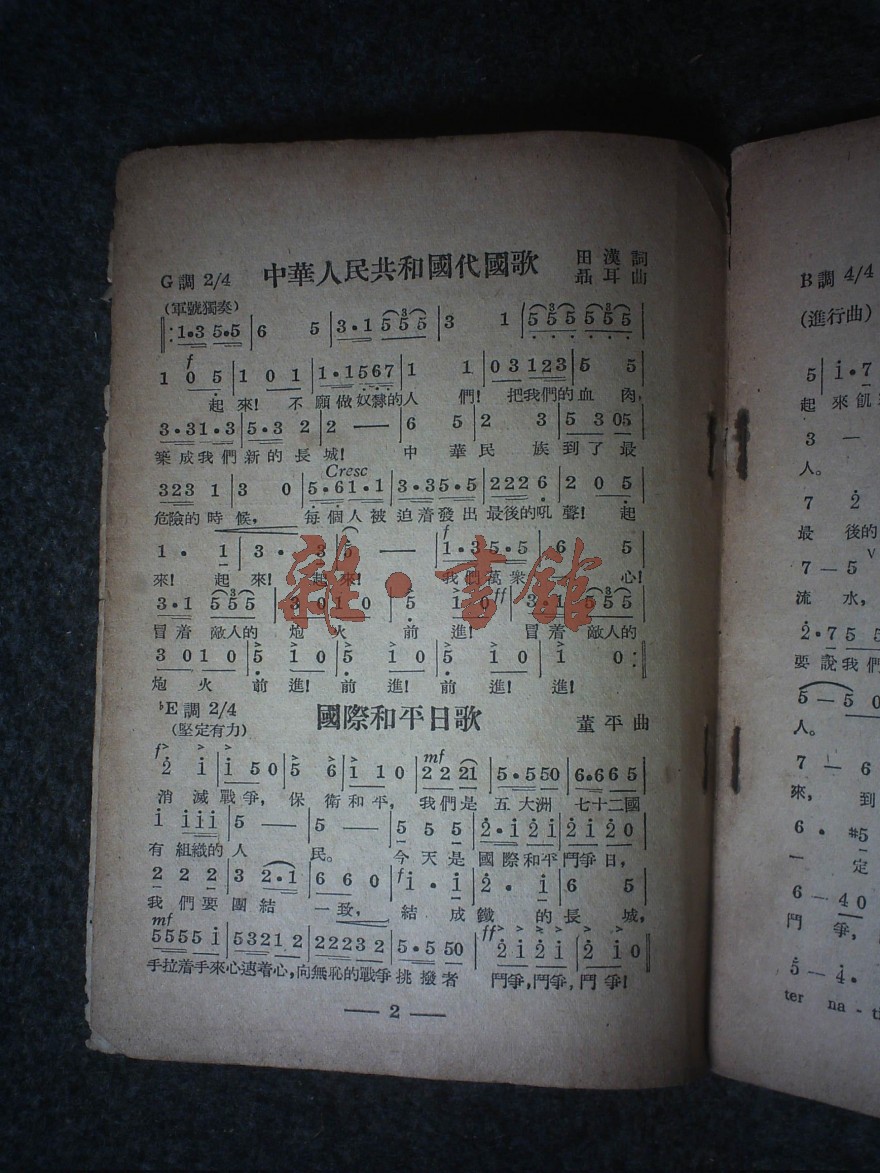 G調 2/4
中華人民共和國代國歌
田漢詞
聶耳曲
(軍號獨奏)
1·3 5·5 | 6 5 | 3·1 5 5 5 | 3 1 | 5 5 5 5 5 5 |
f
1 0 5 | 1 0 1 | 1·1 5 6 7 | 1 1 | 0 3 1 2 3 | 5 5 |
起來! 不願做奴隸的人們! 把我們的血肉,
3·3 1·3 | 5·3 2 | 2 — | 6 5 | 2 3 | 5 3 0 5 |
築成我們新的長城! 中華民族到了最
Cresc
3 2 3 1 | 3 0 | 5·6 1·1 | 3·3 5·5 | 2 2 2 6 | 2 0 5 |
危險的時候, 每個人被迫着發出最後的吼聲! 起
f
1· 1 | 3· 3 | 5 — | 1·3 5·5 | 6 5 |
來! 起來! 起來! 我們萬衆心!
3·1 5 5 5 | 3 0 1 0 | 5 1 0 | 3·1 5 5 5 |
ff
冒着敵人的炮火前進! 冒着敵人的
3 0 1 0 | 5 1 0 | 5 1 0 | 5 1 0 | 1 0 :
炮火前進! 前進! 前進! 進!
♭E調 2/4
國際和平日歌
(堅定有力)
董平曲
f
mf
2 i | i 5 0 | 5 6 | i i 0 | 2 2 2 1 | 5·5 5 0 | 6·6 6 5 |
消滅戰爭, 保衛和平, 我們是五大洲七十二國
i i i i | 5 — | 5 — | 5 5 5 | 2·i 2 i | 2 i 2 0 |
有組織的人民。 今天是國際和平鬥爭日,
f
2 2 2 | 3 2·1 | 6 6 0 | i· i | 2· i | 6 5 |
我們要團結一致, 結成鐵的長城,
mf
ff
5 5 5 5 i | 5 3 2 1 1 2 | 2 2 2 3 2 | 5·5 5 0 | 2 i 2 i | 2 i 0 |
手拉着手來心連着心,向無恥的戰爭挑撥者 鬥爭,鬥爭,鬥爭!
— 2 —
雜·書館
B調 4/4
(進行曲)
5 | i·7
起來飢
3 —
人。
7 2
最後的
V
7 — 5
流水,
2·7 5 5
要說我們
5 — 5 0
人。
7 — 6
來, 到
6· #5
一定
6 — 4 0
鬥爭,
5 — 4·
ter na - t